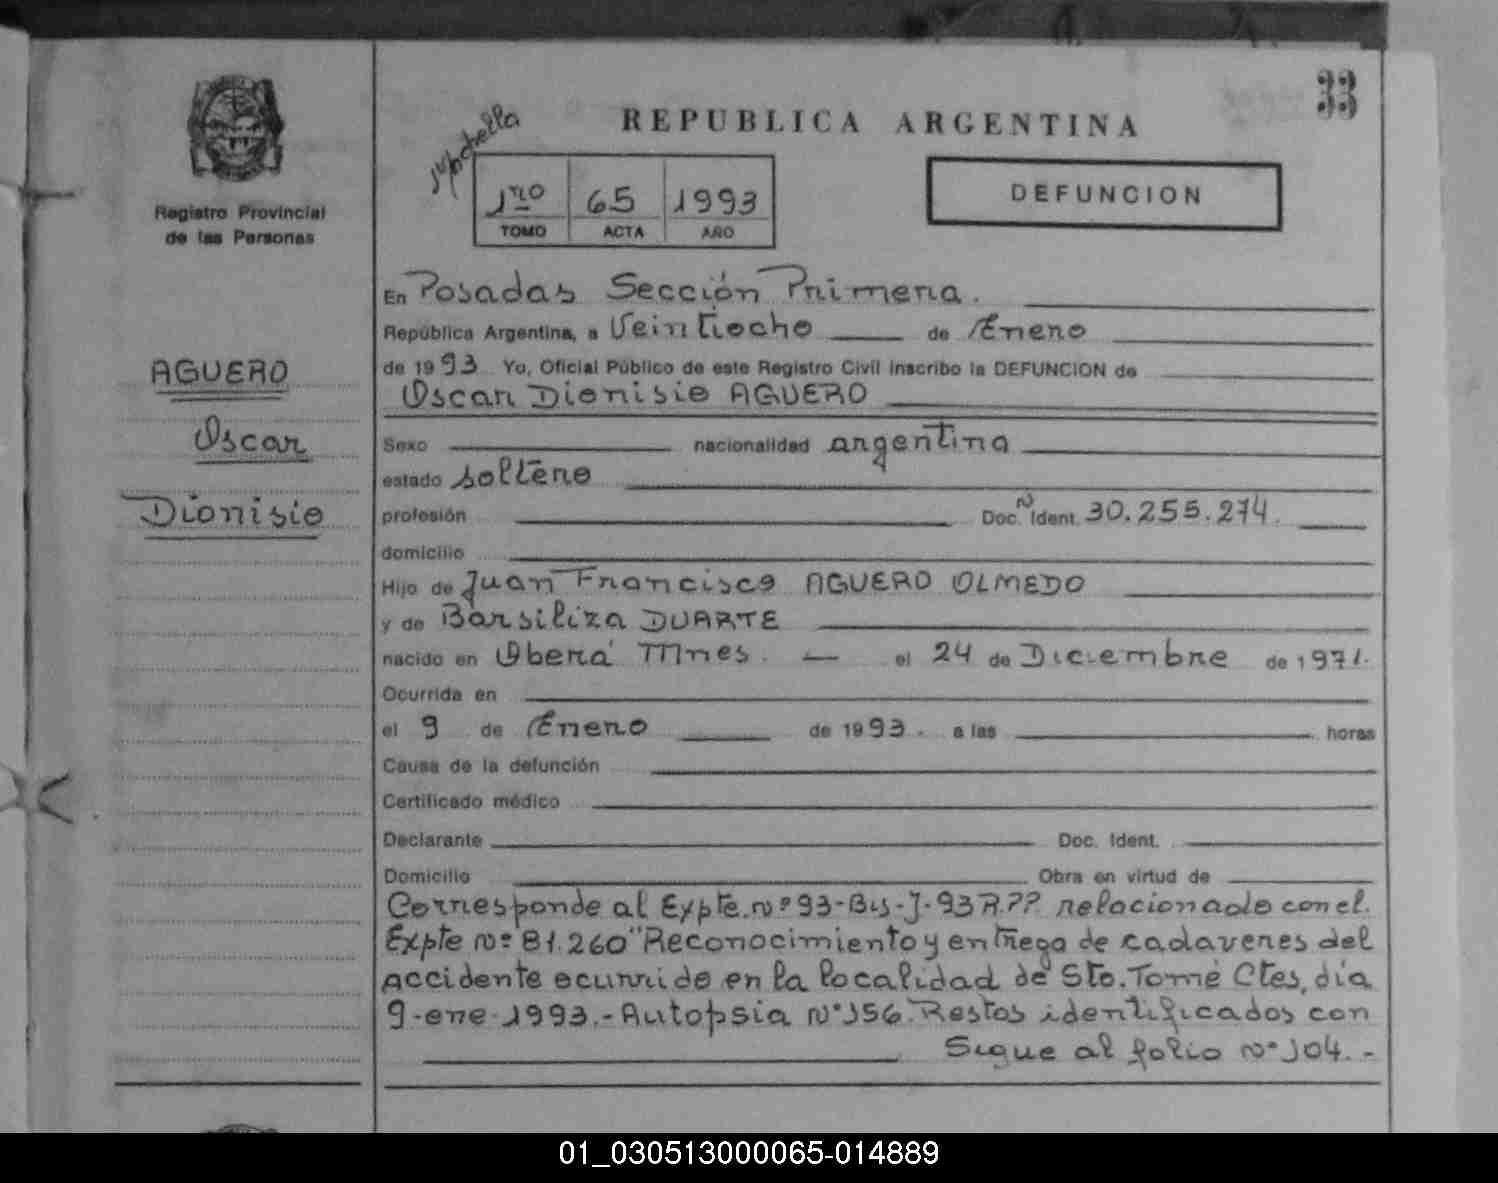 33
REPUBLICA ARGENTINA
Registro Provincial
de las Personas
1ro 65 1993
TOMO ACTA AÑO
DEFUNCION
AGUERO
Oscar
Dionisio
En Posadas Sección Primera.
República Argentina, a Veintiocho de Enero
de 1993 Yo, Oficial Público de este Registro Civil inscribo la DEFUNCION de
Oscar Dionisio AGUERO
Sexo nacionalidad argentina
estado soltero
profesión Doc. N Ident. 30.255.274.
domicilio
Hijo de Juan Francisco AGUERO OLMEDO
y de Barsiliza DUARTE
nacido en Oberá Mnes. — el 24 de Diciembre de 1971.
Ocurrida en
el 9 de Enero de 1993. a las horas
Causa de la defunción
Certificado médico
Declarante Doc. Ident.
Domicilio Obra en virtud de
Corresponde al Expte. nº 93-Bis-J-93 R.PP. relacionado con el.
Expte nº 81.260 "Reconocimiento y entrega de cadaveres del
accidente ocurrido en la localidad de Sto. Tomé Ctes, día
9-ene-1993.- Autopsia Nº 156. Restos identificados con
Sigue al folio Nº 104.-
01_030513000065-014889